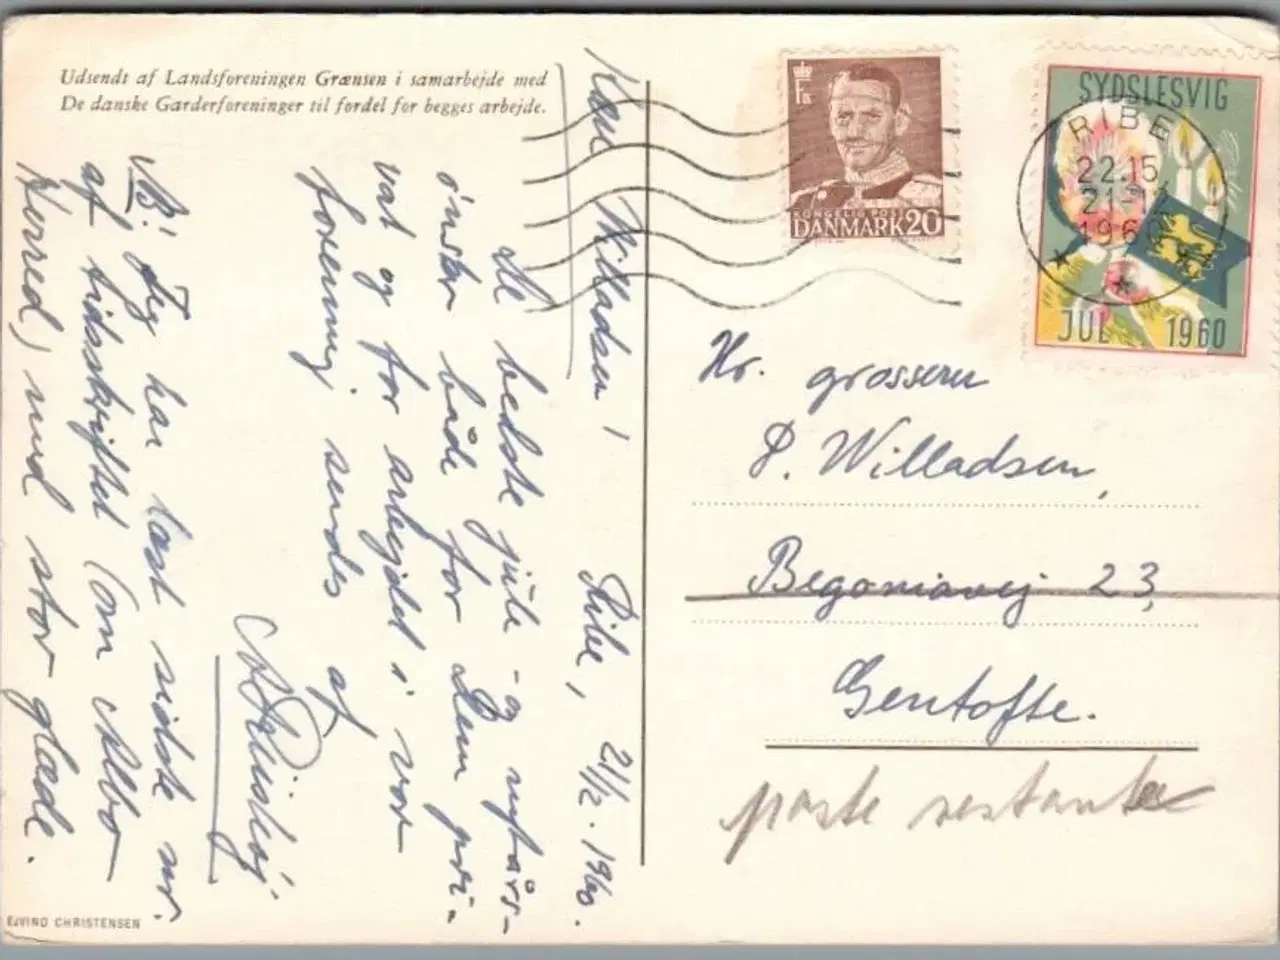 Udsendt af Landsforeningen Grænsen i samarbejde med
De danske Garderforeninger til fordel for begges arbejde.
Kære Willadsen! Ribe, 21/12. 1960.
De bedste jule- og nytårs-
ønsker både for Dem pri-
vat og for arbejdet i vor
forening sendes af
NB! Jeg har læst sidste nr.
af tidsskriftet (om Albo
Herred) med stor glæde.
EJVIND CHRISTENSEN
KONGELIG POST
DANMARK 20
SYDSLESVIG
JUL 1960
RIBE
22.15
21-12
1960
Hr. grosserer
P. Willadsen,
Begoniavej 23,
Gentofte.
poste restante